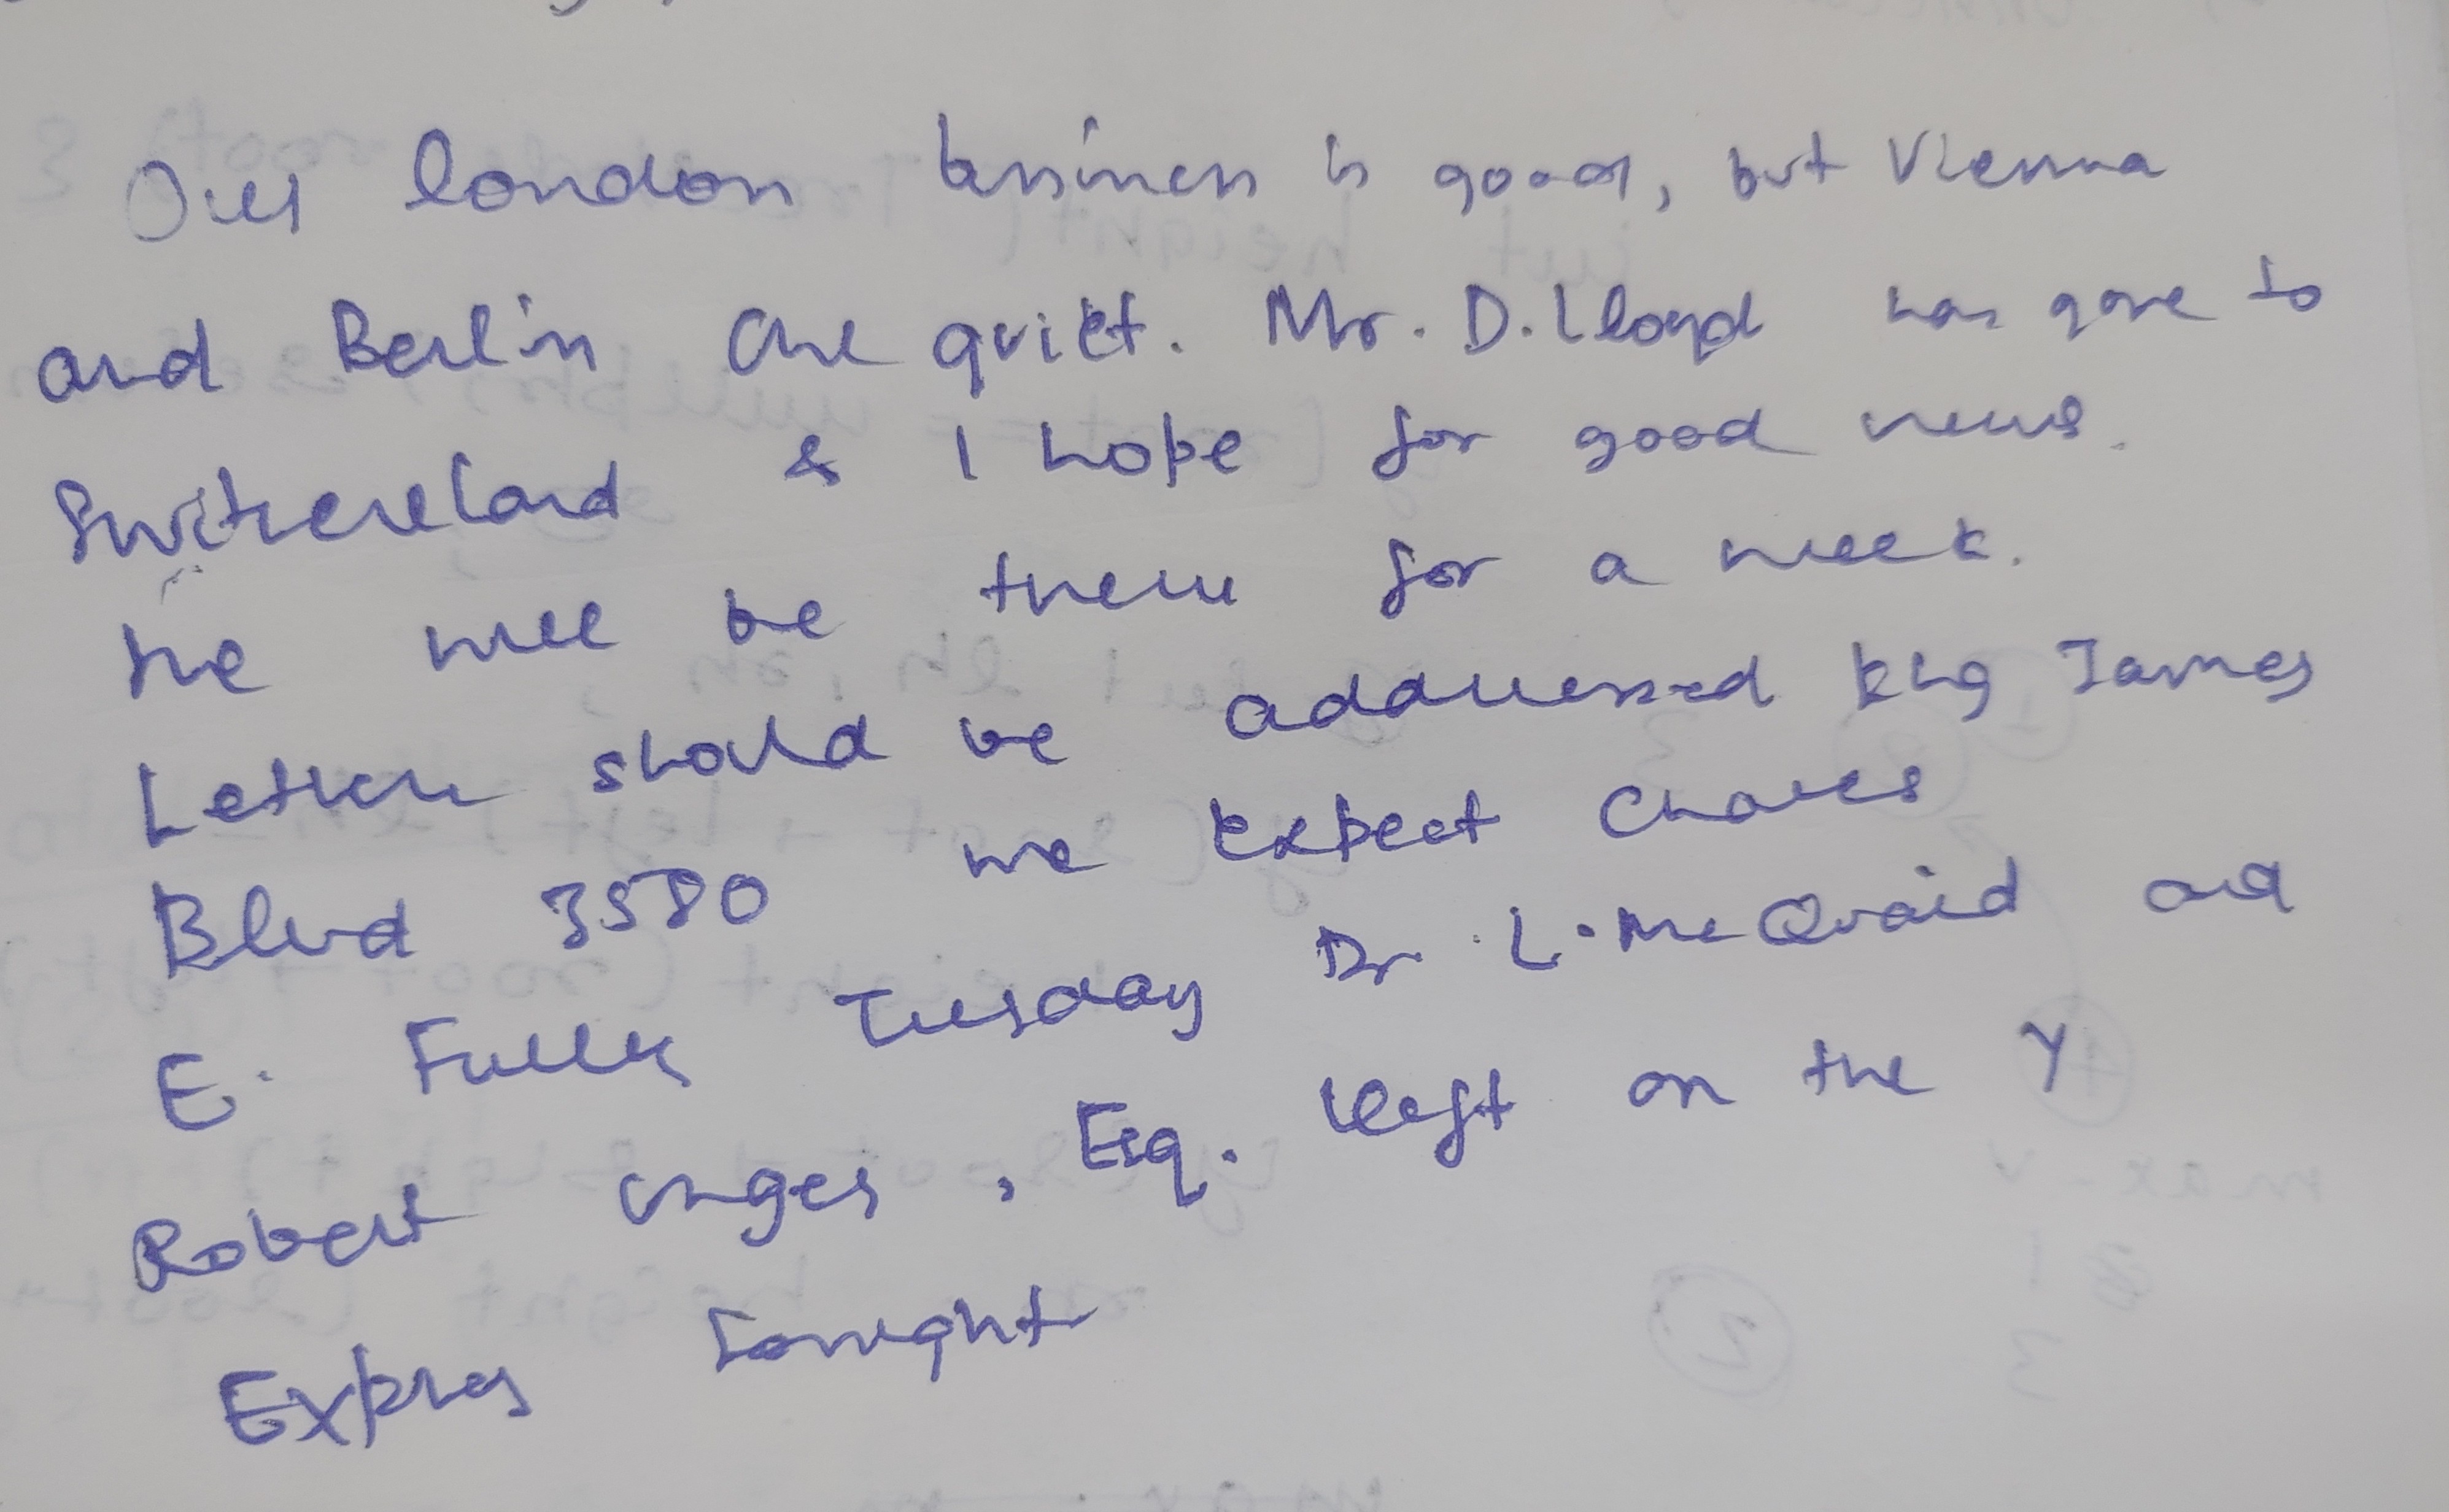 Our london business is good, but Vienna
and Berlin are quiet. Mr. D. Lloyd has gone to
Switzereland & I hope for good news.
he will be there for a week.
Letter should be addressed king James
Blvd 3580 we expect Charles
E. Fuller Tuesday Dr. L. McQuaid and
Robert unger, Esq. left on the Y
Expres tonight